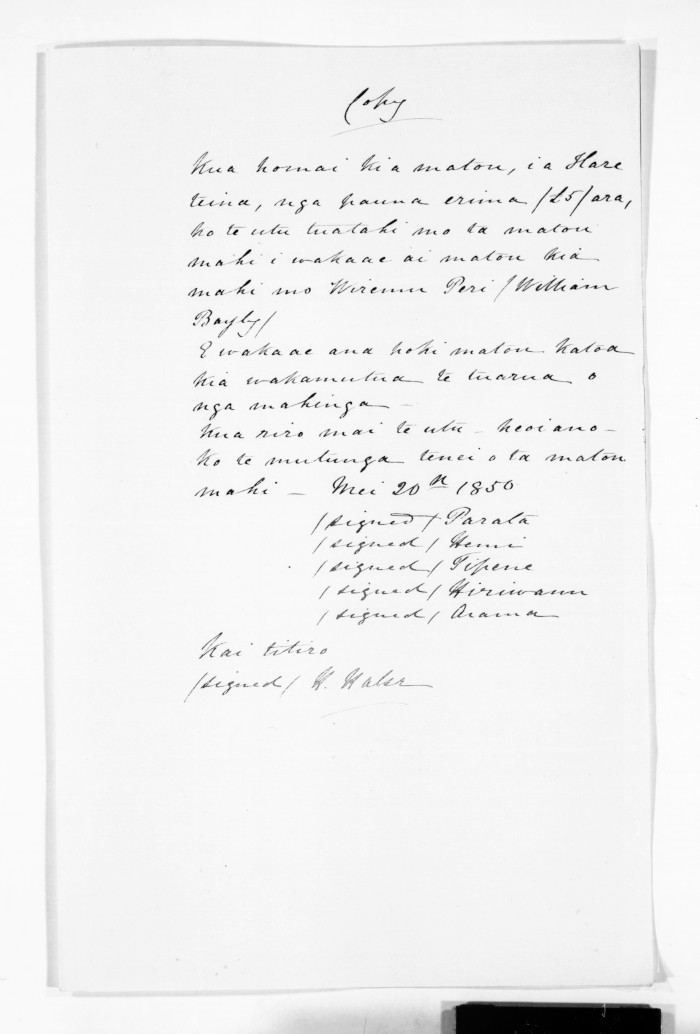 Copy
Kua homai kia matou, i a Hare
teina, nga pauna erima /£5/ ara,
ko te utu tuatahi mo ta matou
mahi i wakaae ai matou kia
mahi mo Wiremu Peri /William
Bayly/
E wakaae ana hoki matou katoa
kia wakamutua te tuarua o
nga mahinga —
Kua riro mai te utu — heoiano —
Ko te mutunga tenei o ta matou
mahi — Mei 20th 1850
/signed/ Parata
/signed/ Hemi
/signed/ Tipene
/signed/ Hiriwanu
/signed/ Arama
Kai titiro
/signed/ H. Halse